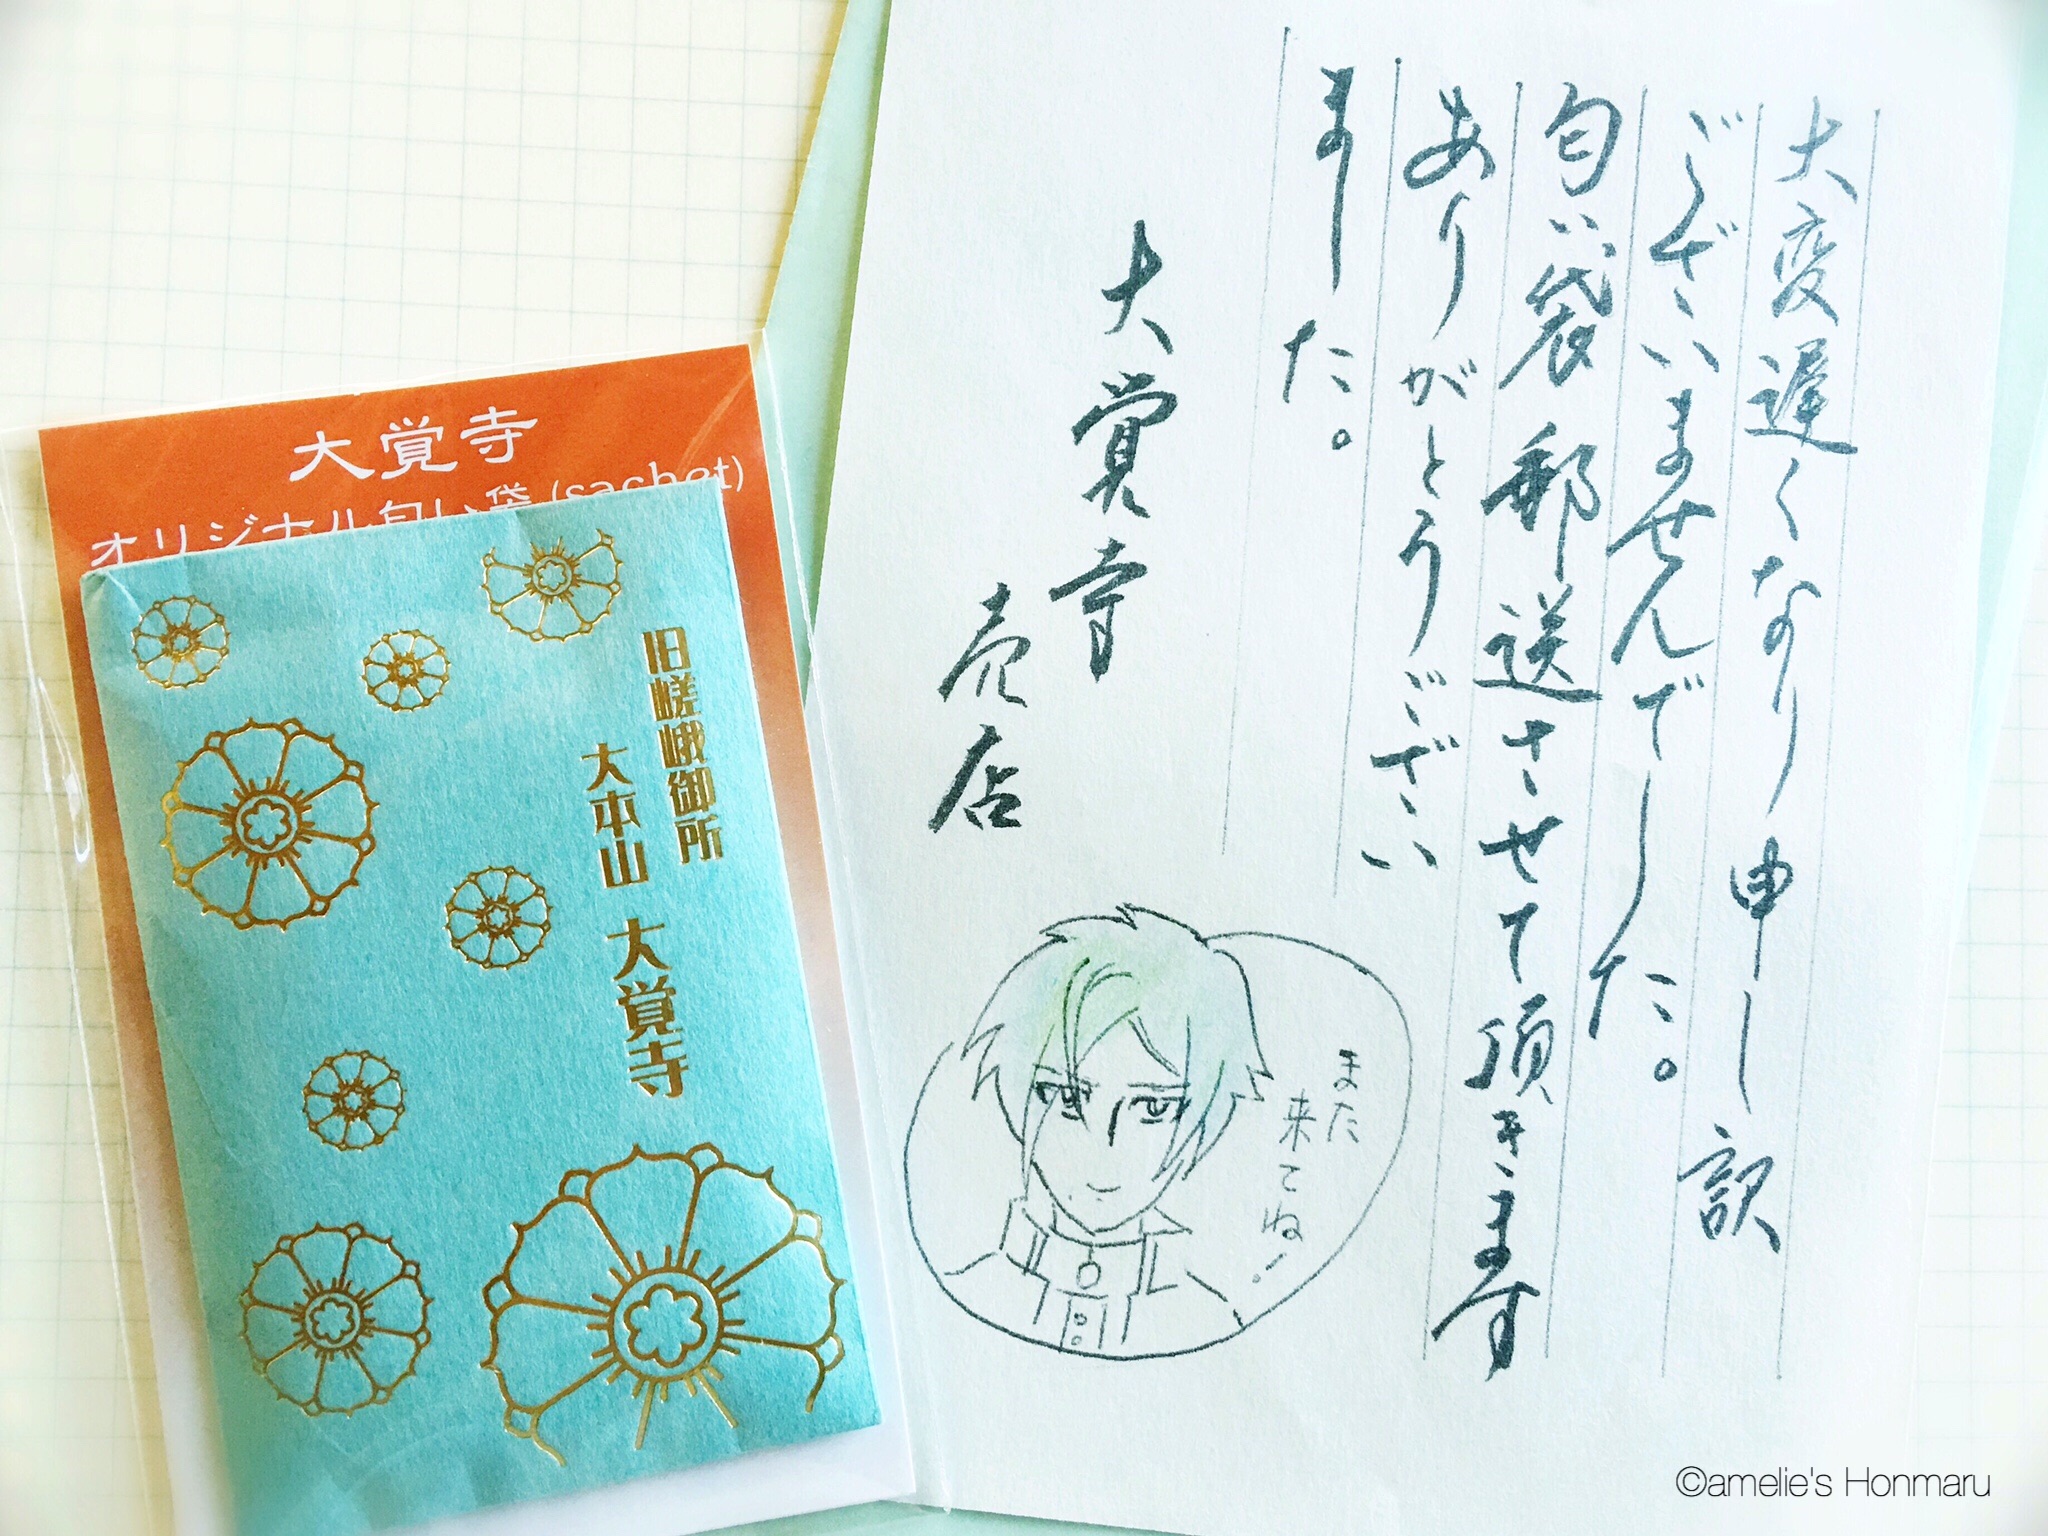 大覚寺
オリジナル匂い袋(sachet)
旧嵯峨御所
大本山 大覚寺
大変遅くなり申し訳
ございませんでした。
匂い袋郵送させて頂きます
ありがとうござい
ました。
大覚寺
売店
また
来てね!
©amelie's Honmaru